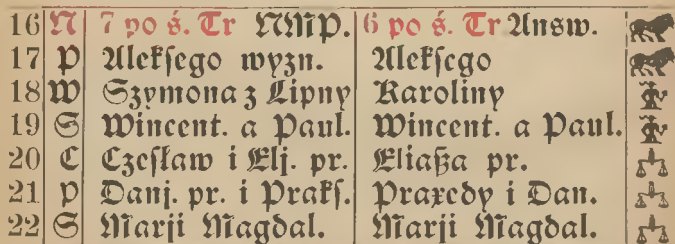 16 N 7 po ś. Tr NMP. 6 po ś. Tr Answ.
17 P Alekſego wyzn. Alekſego
18 W Szymona z Lipny Karoliny
19 S Wincent. a Paul. Wincent. a Paul.
20 C Czeſław i Elj. pr. Eliaßa pr.
21 P Danj. pr. i Prakſ. Praxedy i Dan.
22 S Marji Magdal. Marji Magdal.